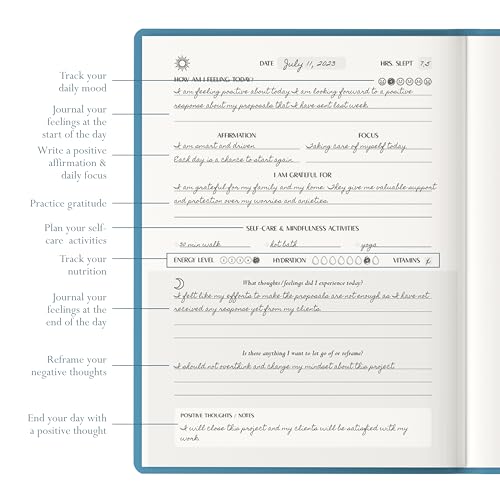 DATE July 11, 2023 HRS. SLEPT 7,5
HOW AM I FEELING TODAY?
I am feeling positive about today. I am looking forward to a positive
response about my proposals that I have sent last week.
AFFIRMATION FOCUS
I am smart and driven. Taking care of myself today.
Each day is a chance to start again.
I AM GRATEFUL FOR
I am grateful for my family and my home. They give me valuable support
and protection over my worries and anxieties.
SELF-CARE & MINDFULNESS ACTIVITIES
30 min walk hot bath yoga
ENERGY LEVEL 1 2 3 4 HYDRATION VITAMINS
What thoughts/feelings did I experience today?
I felt like my efforts to make the proposals are not enough as I have not
received any response yet from my clients.
Is there anything I want to let go of or reframe?
I should not overthink and change my mindset about this project.
POSITIVE THOUGHTS / NOTES
I will close this project and my clients will be satisfied with my
work.
Track your
daily mood
Journal your
feelings at the
start of the day
Write a positive
affirmation &
daily focus
Practice gratitude
Plan your self-
care activities
Track your
nutrition
Journal your
feelings at the
end of the day
Reframe your
negative thoughts
End your day with
a positive thought